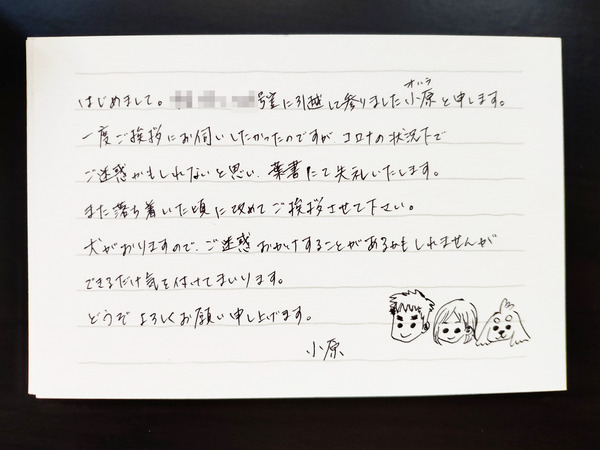 はじめまして。 号室に引越して参りました小原と申します。
オハラ
一度ご挨拶にお伺いしたかったのですが コロナの状況下で
ご迷惑かもしれないと思い、葉書にて失礼いたします。
また落ち着いた頃に改めてご挨拶させて下さい。
犬がおりますので、ご迷惑おかけすることがあるかもしれませんが
できるだけ気を付けてまいります。
どうぞよろしくお願い申し上げます。
小原